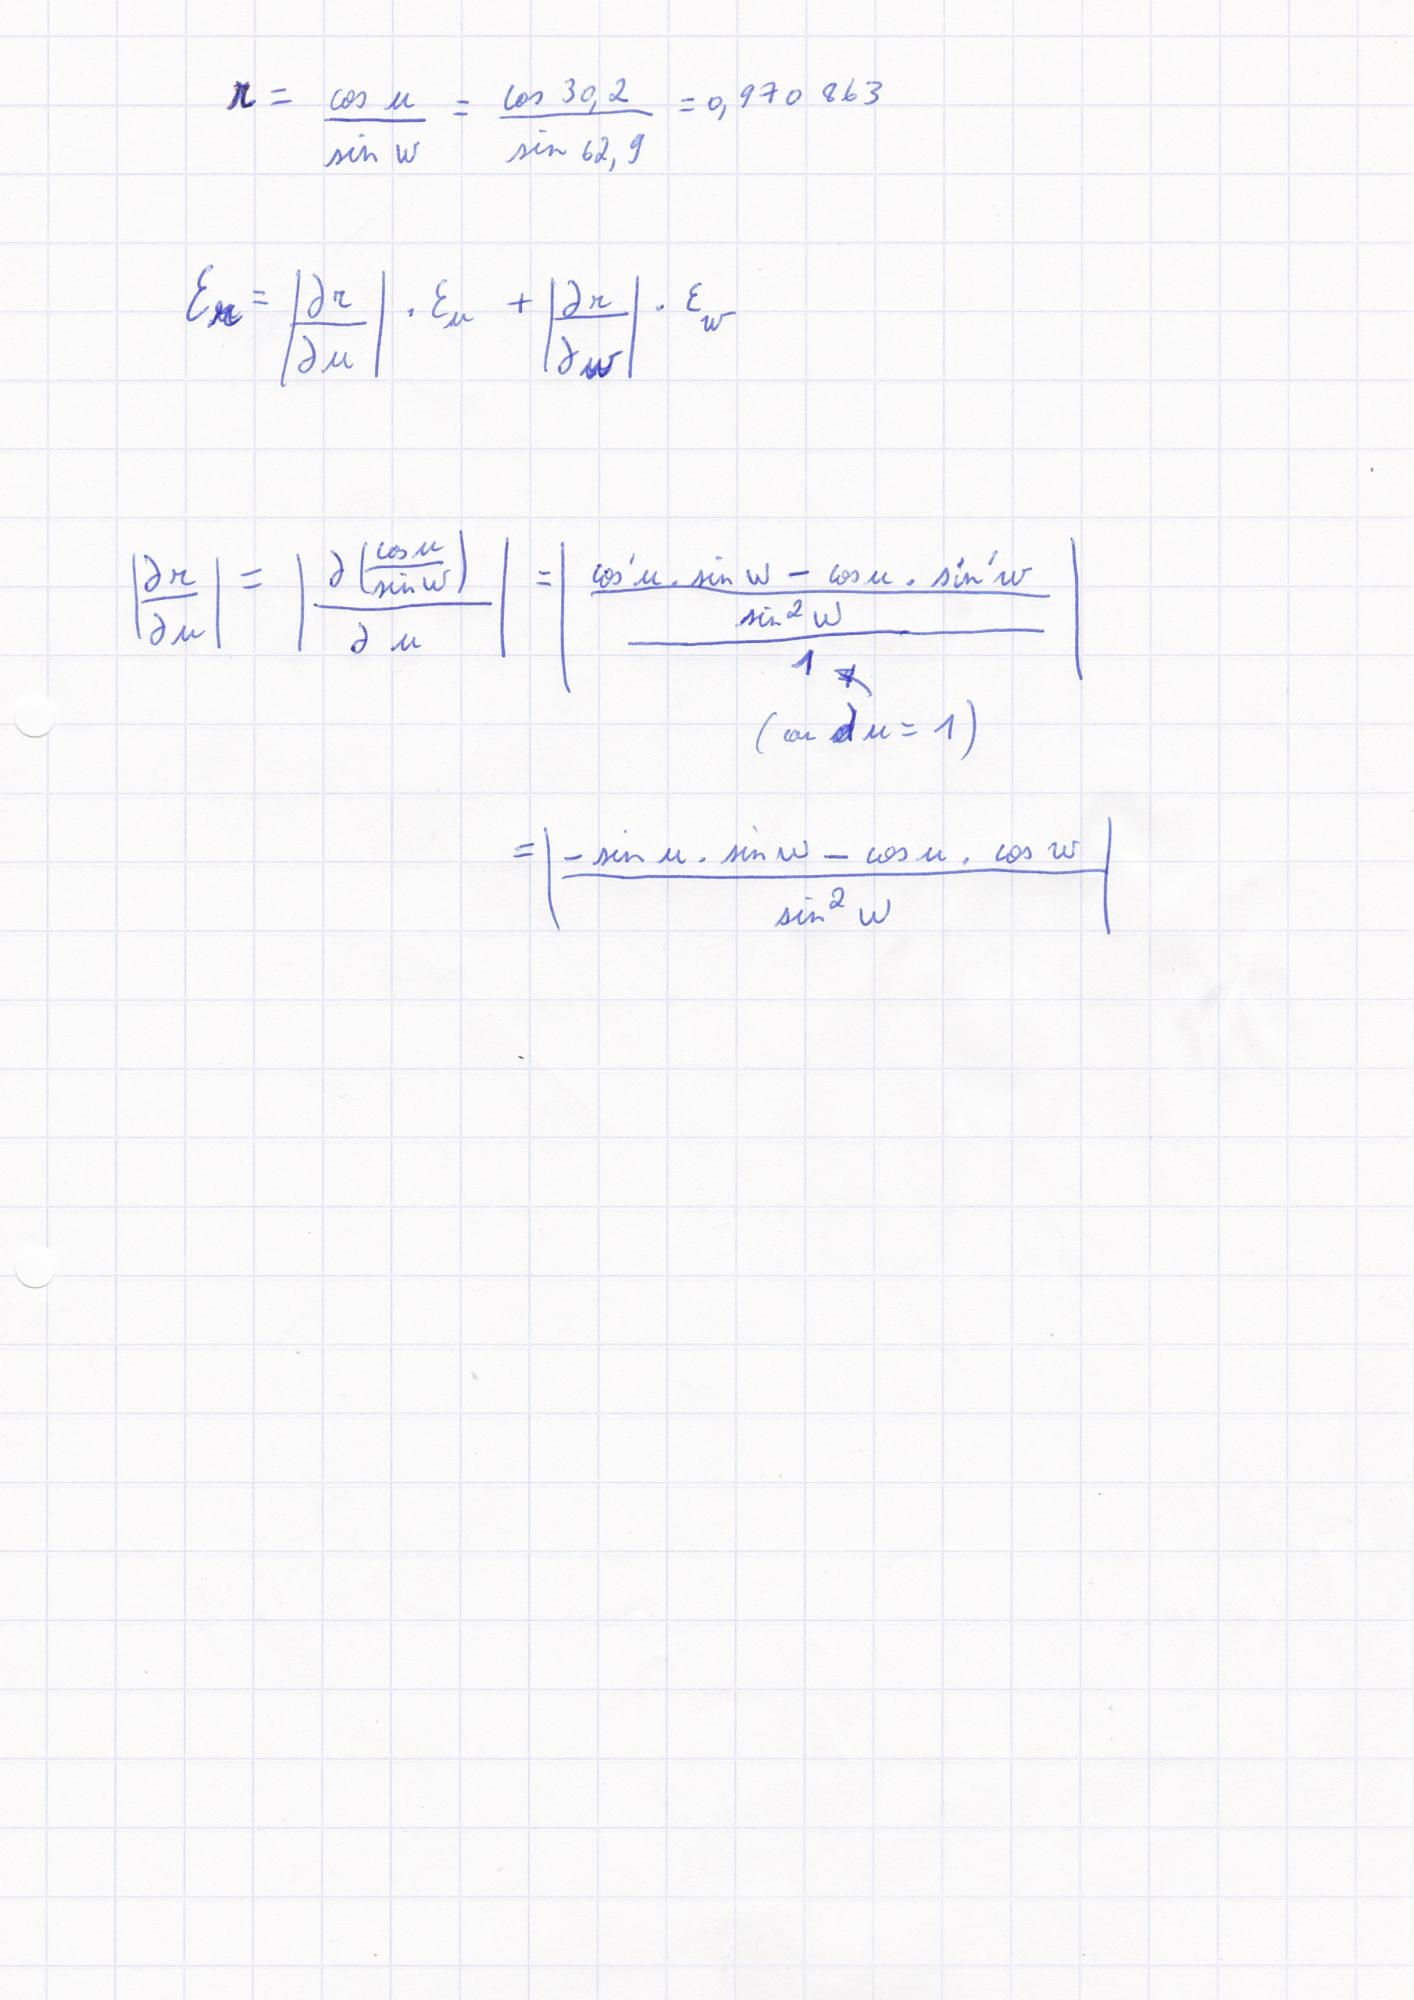 r = cos u / sin w = cos 30,2 / sin 62,9 = 0,970 863
Er = |∂r/∂u| . εu + |∂r/∂w| . εw
|∂r/∂u| = |∂(cos u/sin w) / ∂u| = |(cos'u . sin w − cos u . sin'w) / sin² w / 1|
(car ∂u = 1)
= |(−sin u . sin w − cos u . cos w) / sin² w|